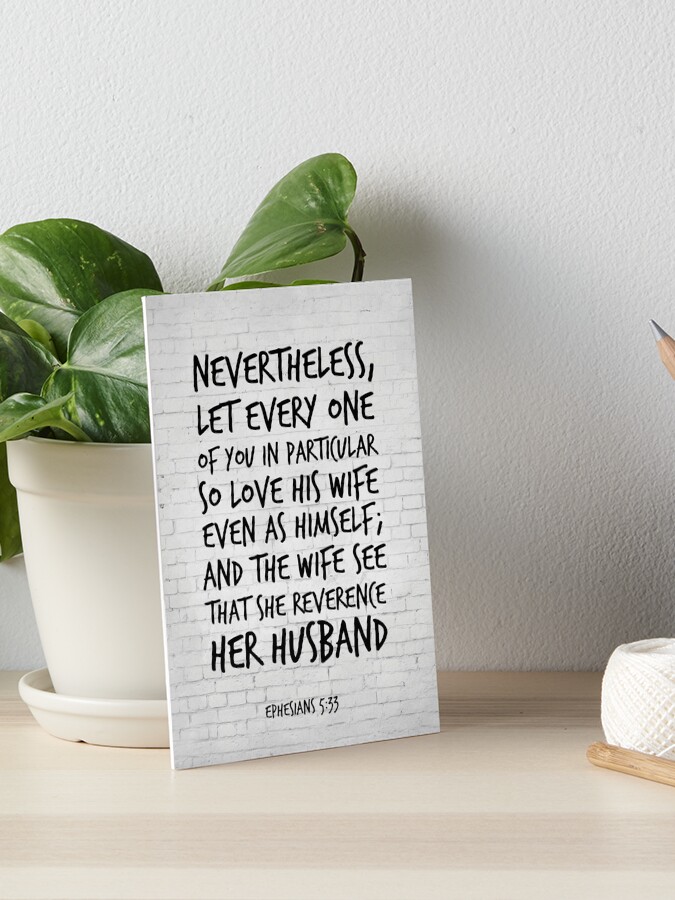 NEVERTHELESS,
LET EVERY ONE
OF YOU IN PARTICULAR
SO LOVE HIS WIFE
EVEN AS HIMSELF;
AND THE WIFE SEE
THAT SHE REVERENCE
HER HUSBAND
EPHESIANS 5:33